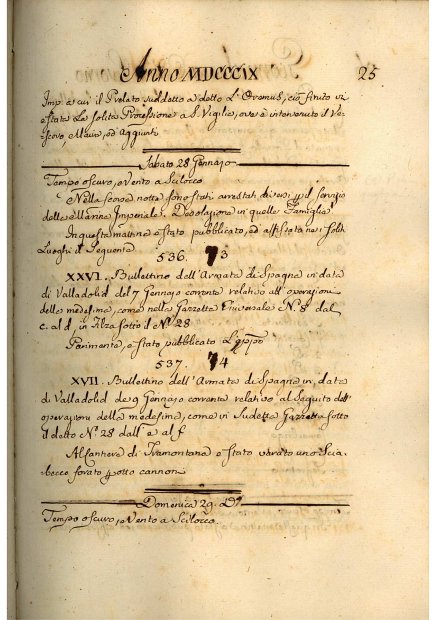 Anno MDCCCIX 25
Imp. e cui il Prelato suddetto a detto L'Oremus, ciò finito vi
e stata La solita Processione a S. Vigilio, ove è intervenuto il Ve-
scovo, Maire, ed Aggiunti
Sabato 28 Gennajo
Tempo oscuro, e Vento a Scilocco
Nella scorsa notte sono stati arrestati diversi per il servizio
della Marina Imperiale. Desolazione in quelle Famiglie
In questa mattina e stato pubblicato, ed affisso ne i soliti
Luoghi il seguente
536. 73
XXVI. Bullettino dell'Armata di Spagna in data
di Valladolid del 7 Gennajo corrente relativo all'operazioni
della medesima, come nella Gazzetta Universale N. 8 dal
c. al d, in Filza sotto il N. 28
Parimente, e stato pubblicato L'
537. 74
XVII. Bullettino dell'Armata di Spagna in data
di Valladolid de 9 Gennajo corrente relativo al Seguito dell'
operazioni della medesima, come in sudetta Gazzetta sotto
il detto N. 28 dall'e al f
Al Cantiere di Tramontana e stato varato uno Scia-
becco forato p otto cannoni
Domenica 29. D
Tempo oscuro, e Vento a Scilocco.